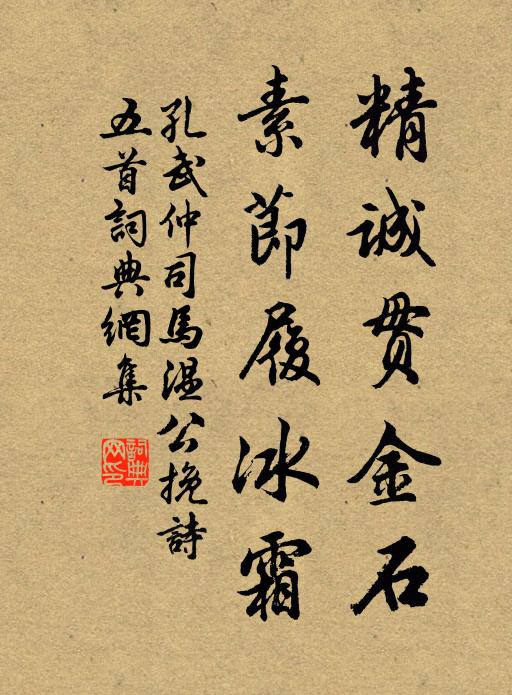 精诚贯金石
素節履冰霜
孔武仲司馬温公挽詩
五首詞典網集
詞典
网印